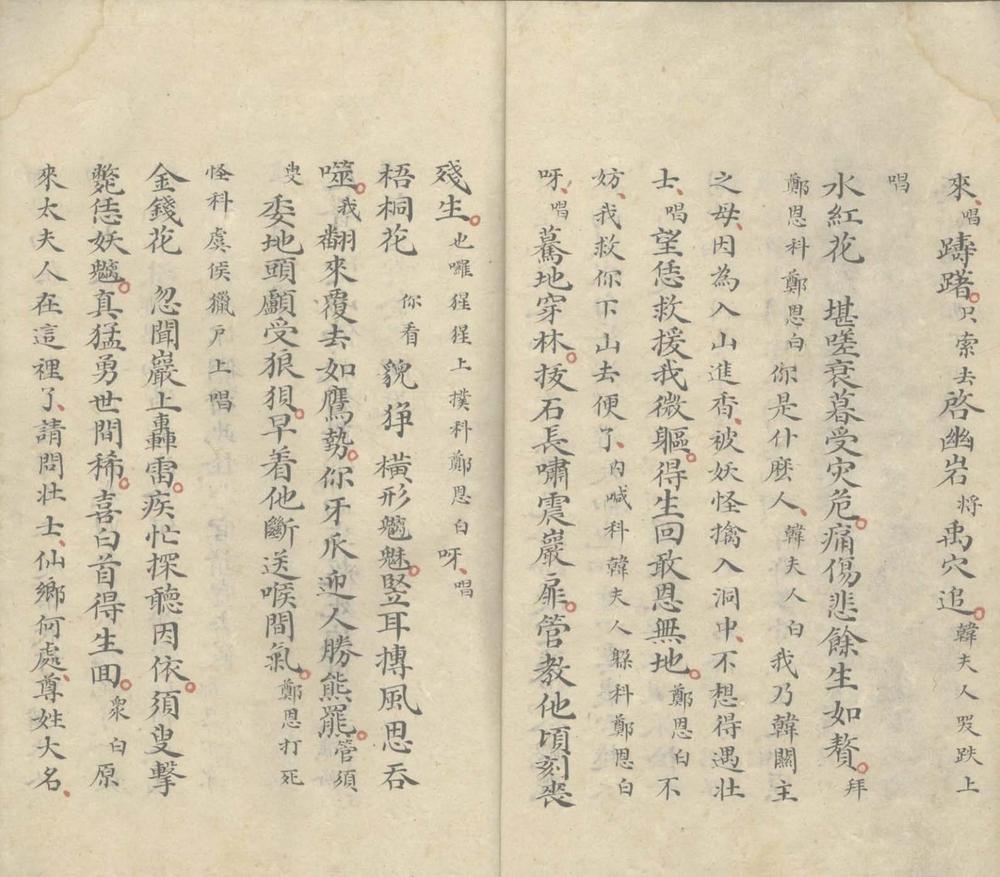 來唱躊躇只索去啓幽岩將禹穴追韓夫人哭跌上
唱
水紅花 堪嗟衰暮受灾危痛傷悲餘生如贅拜
鄭恩科鄭恩白你是什麽人韓夫人白我乃韓關主
之母因為入山進香被妖怪擒入洞中不想得遇壯
士唱望恁救援我微軀得生回敢恩無地鄭恩白不
妨我救你下山去便了內喊科韓夫人躲科鄭恩白
呀唱驀地穿林拔石長嘯震巖扉管教他頃刻喪
殘生也囉猩猩上撲科鄭恩白呀唱
梧桐花 你看貌猙橫形魑魅竪耳摶風思吞
噬我翻來覆去如鷹勢你牙爪迎人勝熊羆管須
叟委地頭顱受狼狽早着他斷送喉間氣鄭恩打死
怪科虞候獵戶上唱
金錢花 忽聞巖上轟雷疾忙探聽因依須叟擊
斃恁妖魑真猛勇世間稀喜白首得生回衆白原
來太夫人在這裡了請問壯士仙鄉何處尊姓大名